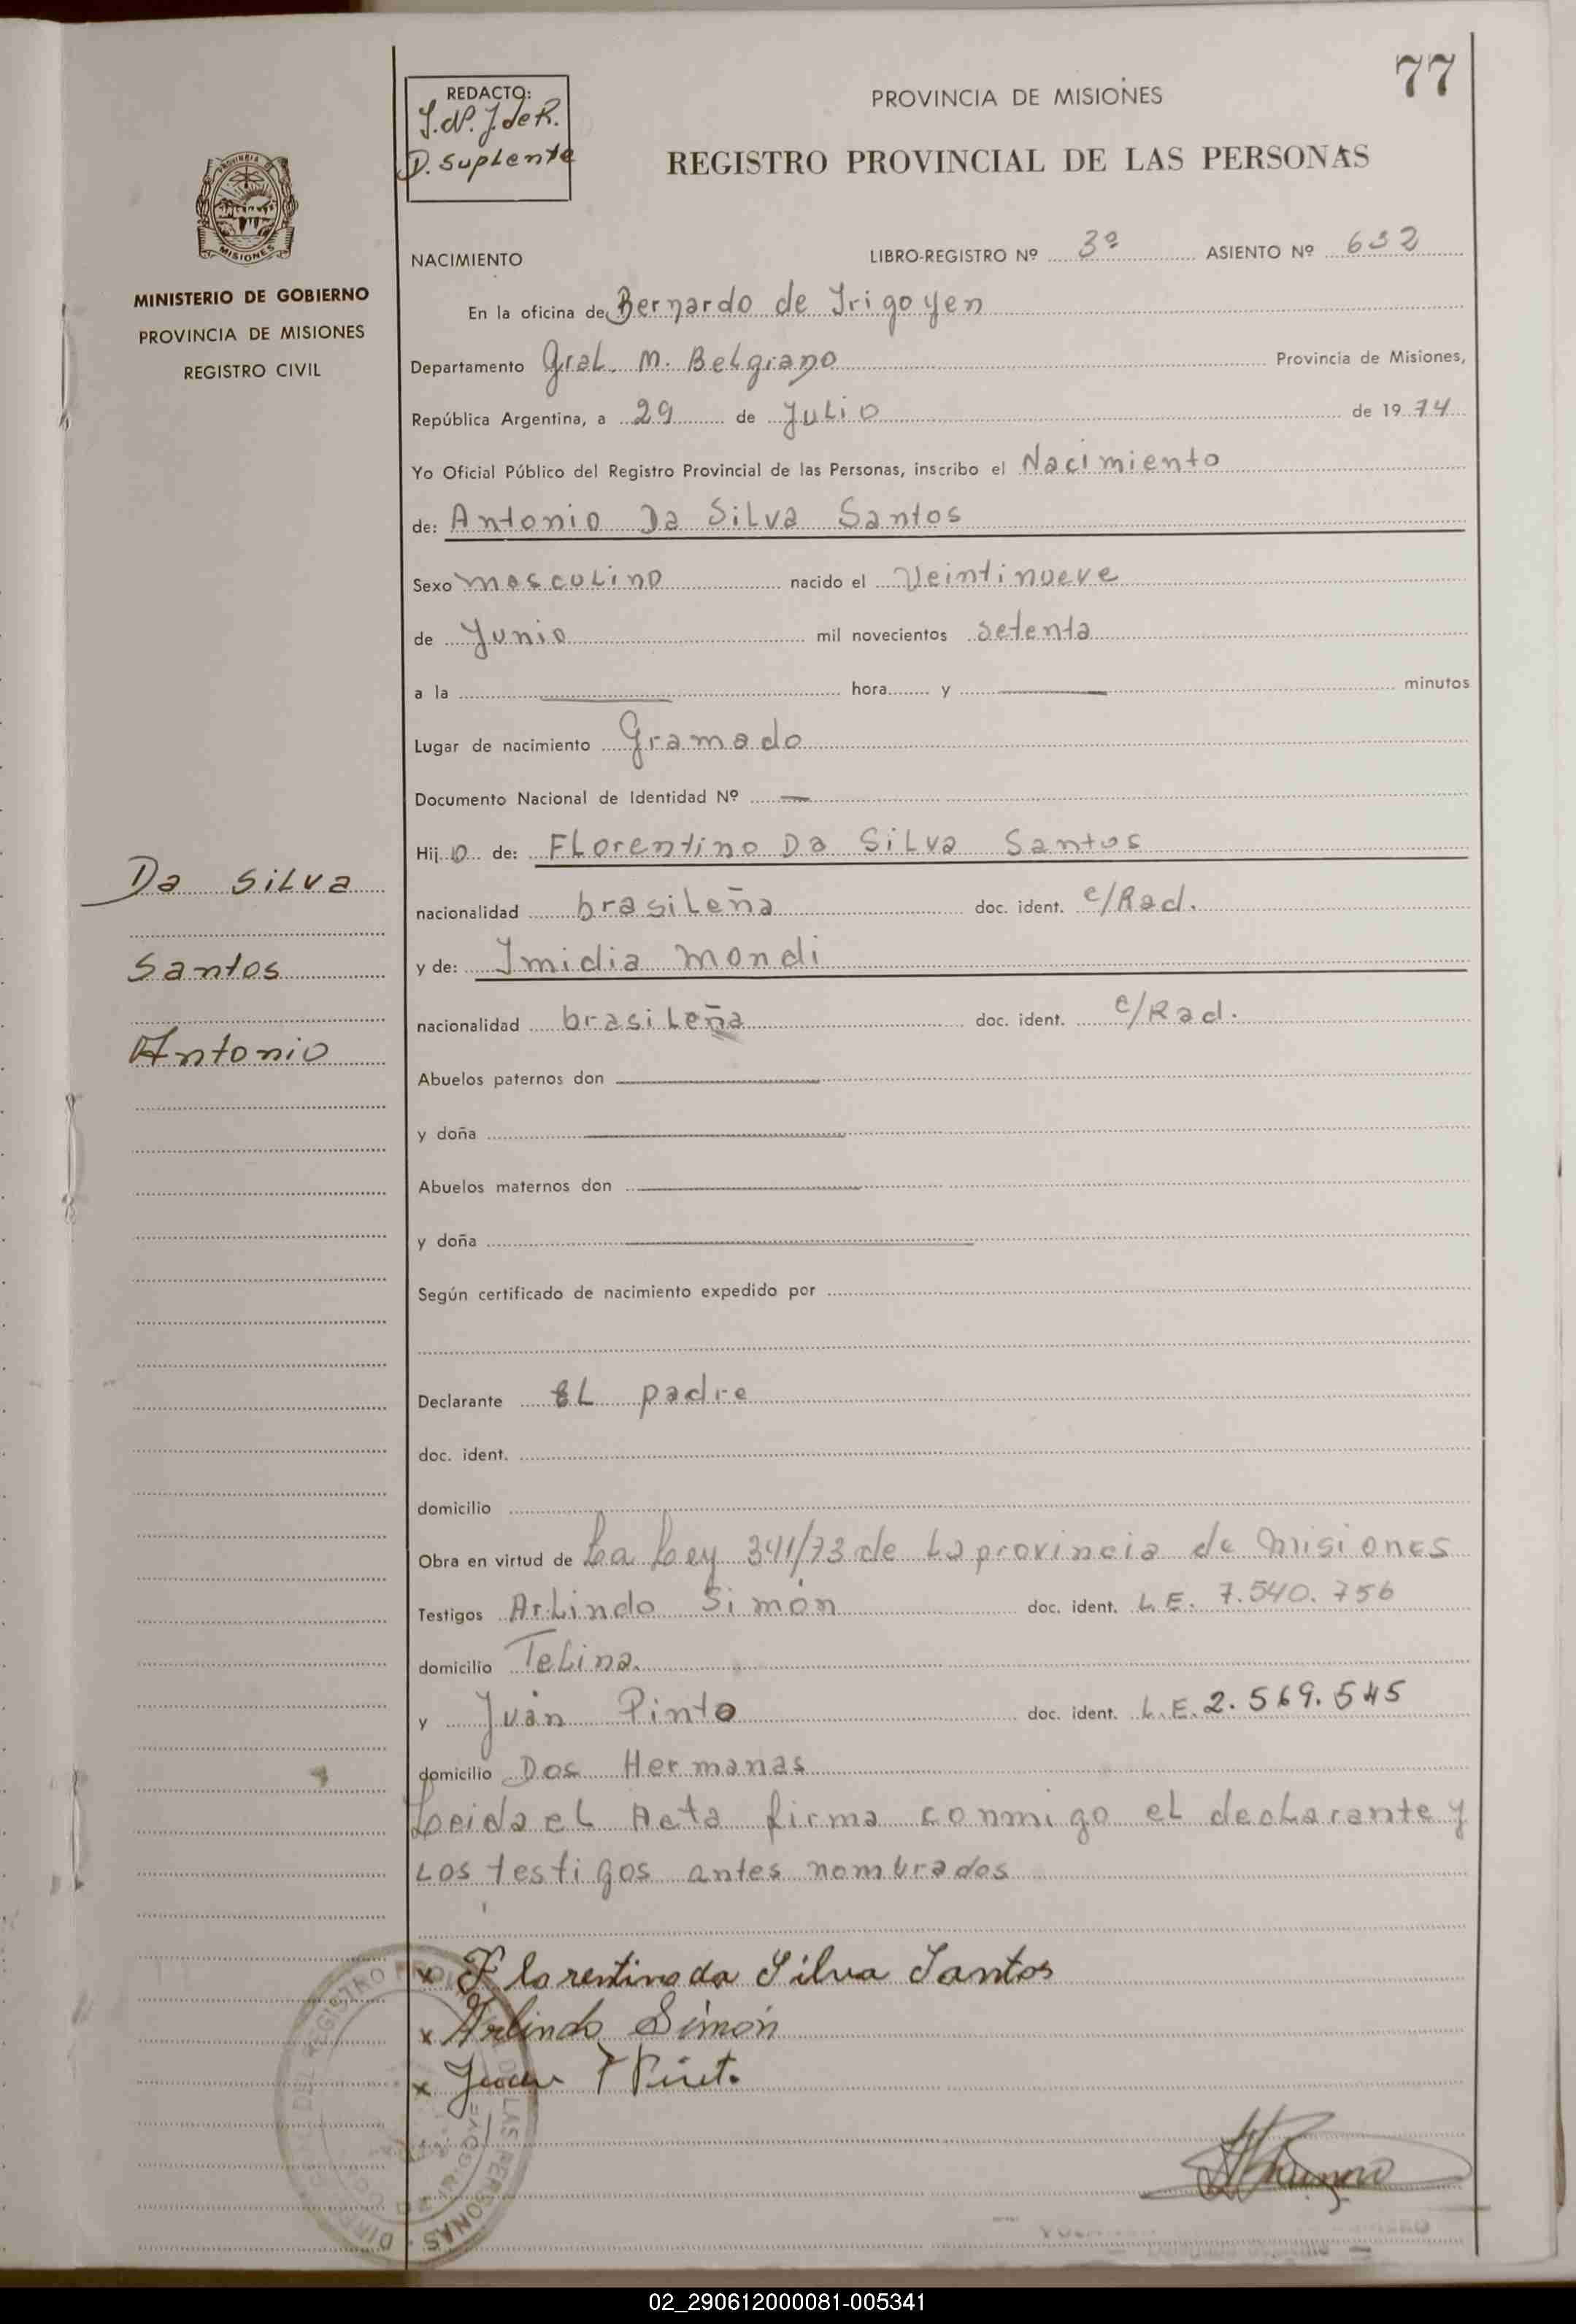 77
REDACTO:
J.N.J. de R.
D. Suplente
PROVINCIA DE MISIONES
REGISTRO PROVINCIAL DE LAS PERSONAS
MISIONES
MINISTERIO DE GOBIERNO
PROVINCIA DE MISIONES
REGISTRO CIVIL
NACIMIENTO LIBRO-REGISTRO Nº 3º ASIENTO Nº 632
En la oficina de Bernardo de Irigoyen
Departamento Gral. M. Belgrano Provincia de Misiones,
República Argentina, a 29 de Julio de 1974
Yo Oficial Público del Registro Provincial de las Personas, inscribo el Nacimiento
de: Antonio Da Silva Santos
Sexo masculino nacido el Veintinueve
de Junio mil novecientos setenta
a la hora y minutos
Lugar de nacimiento Gramado
Documento Nacional de Identidad Nº —
Hijo de: Florentino Da Silva Santos
Da Silva
nacionalidad brasileña doc. ident. c/Rad.
Santos
y de: Imidia Mondi
nacionalidad brasileña doc. ident. c/Rad.
Antonio
Abuelos paternos don
y doña
Abuelos maternos don
y doña
Según certificado de nacimiento expedido por
Declarante El padre
doc. ident.
domicilio
Obra en virtud de La Ley 341/73 de la provincia de Misiones
Testigos Arlindo Simón doc. ident. L.E. 7.540.756
domicilio Telina
y Juán Pinto doc. ident. L.E. 2.569.545
domicilio Dos Hermanas
Leida el Acta firma conmigo el declarante y
los testigos antes nombrados
x Florentino da Silva Santos
x Arlindo Simón
x Juan Pinto
02_290612000081-005341